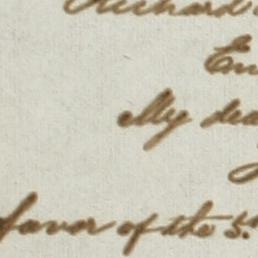 Richard
My dea
favor of the 5.